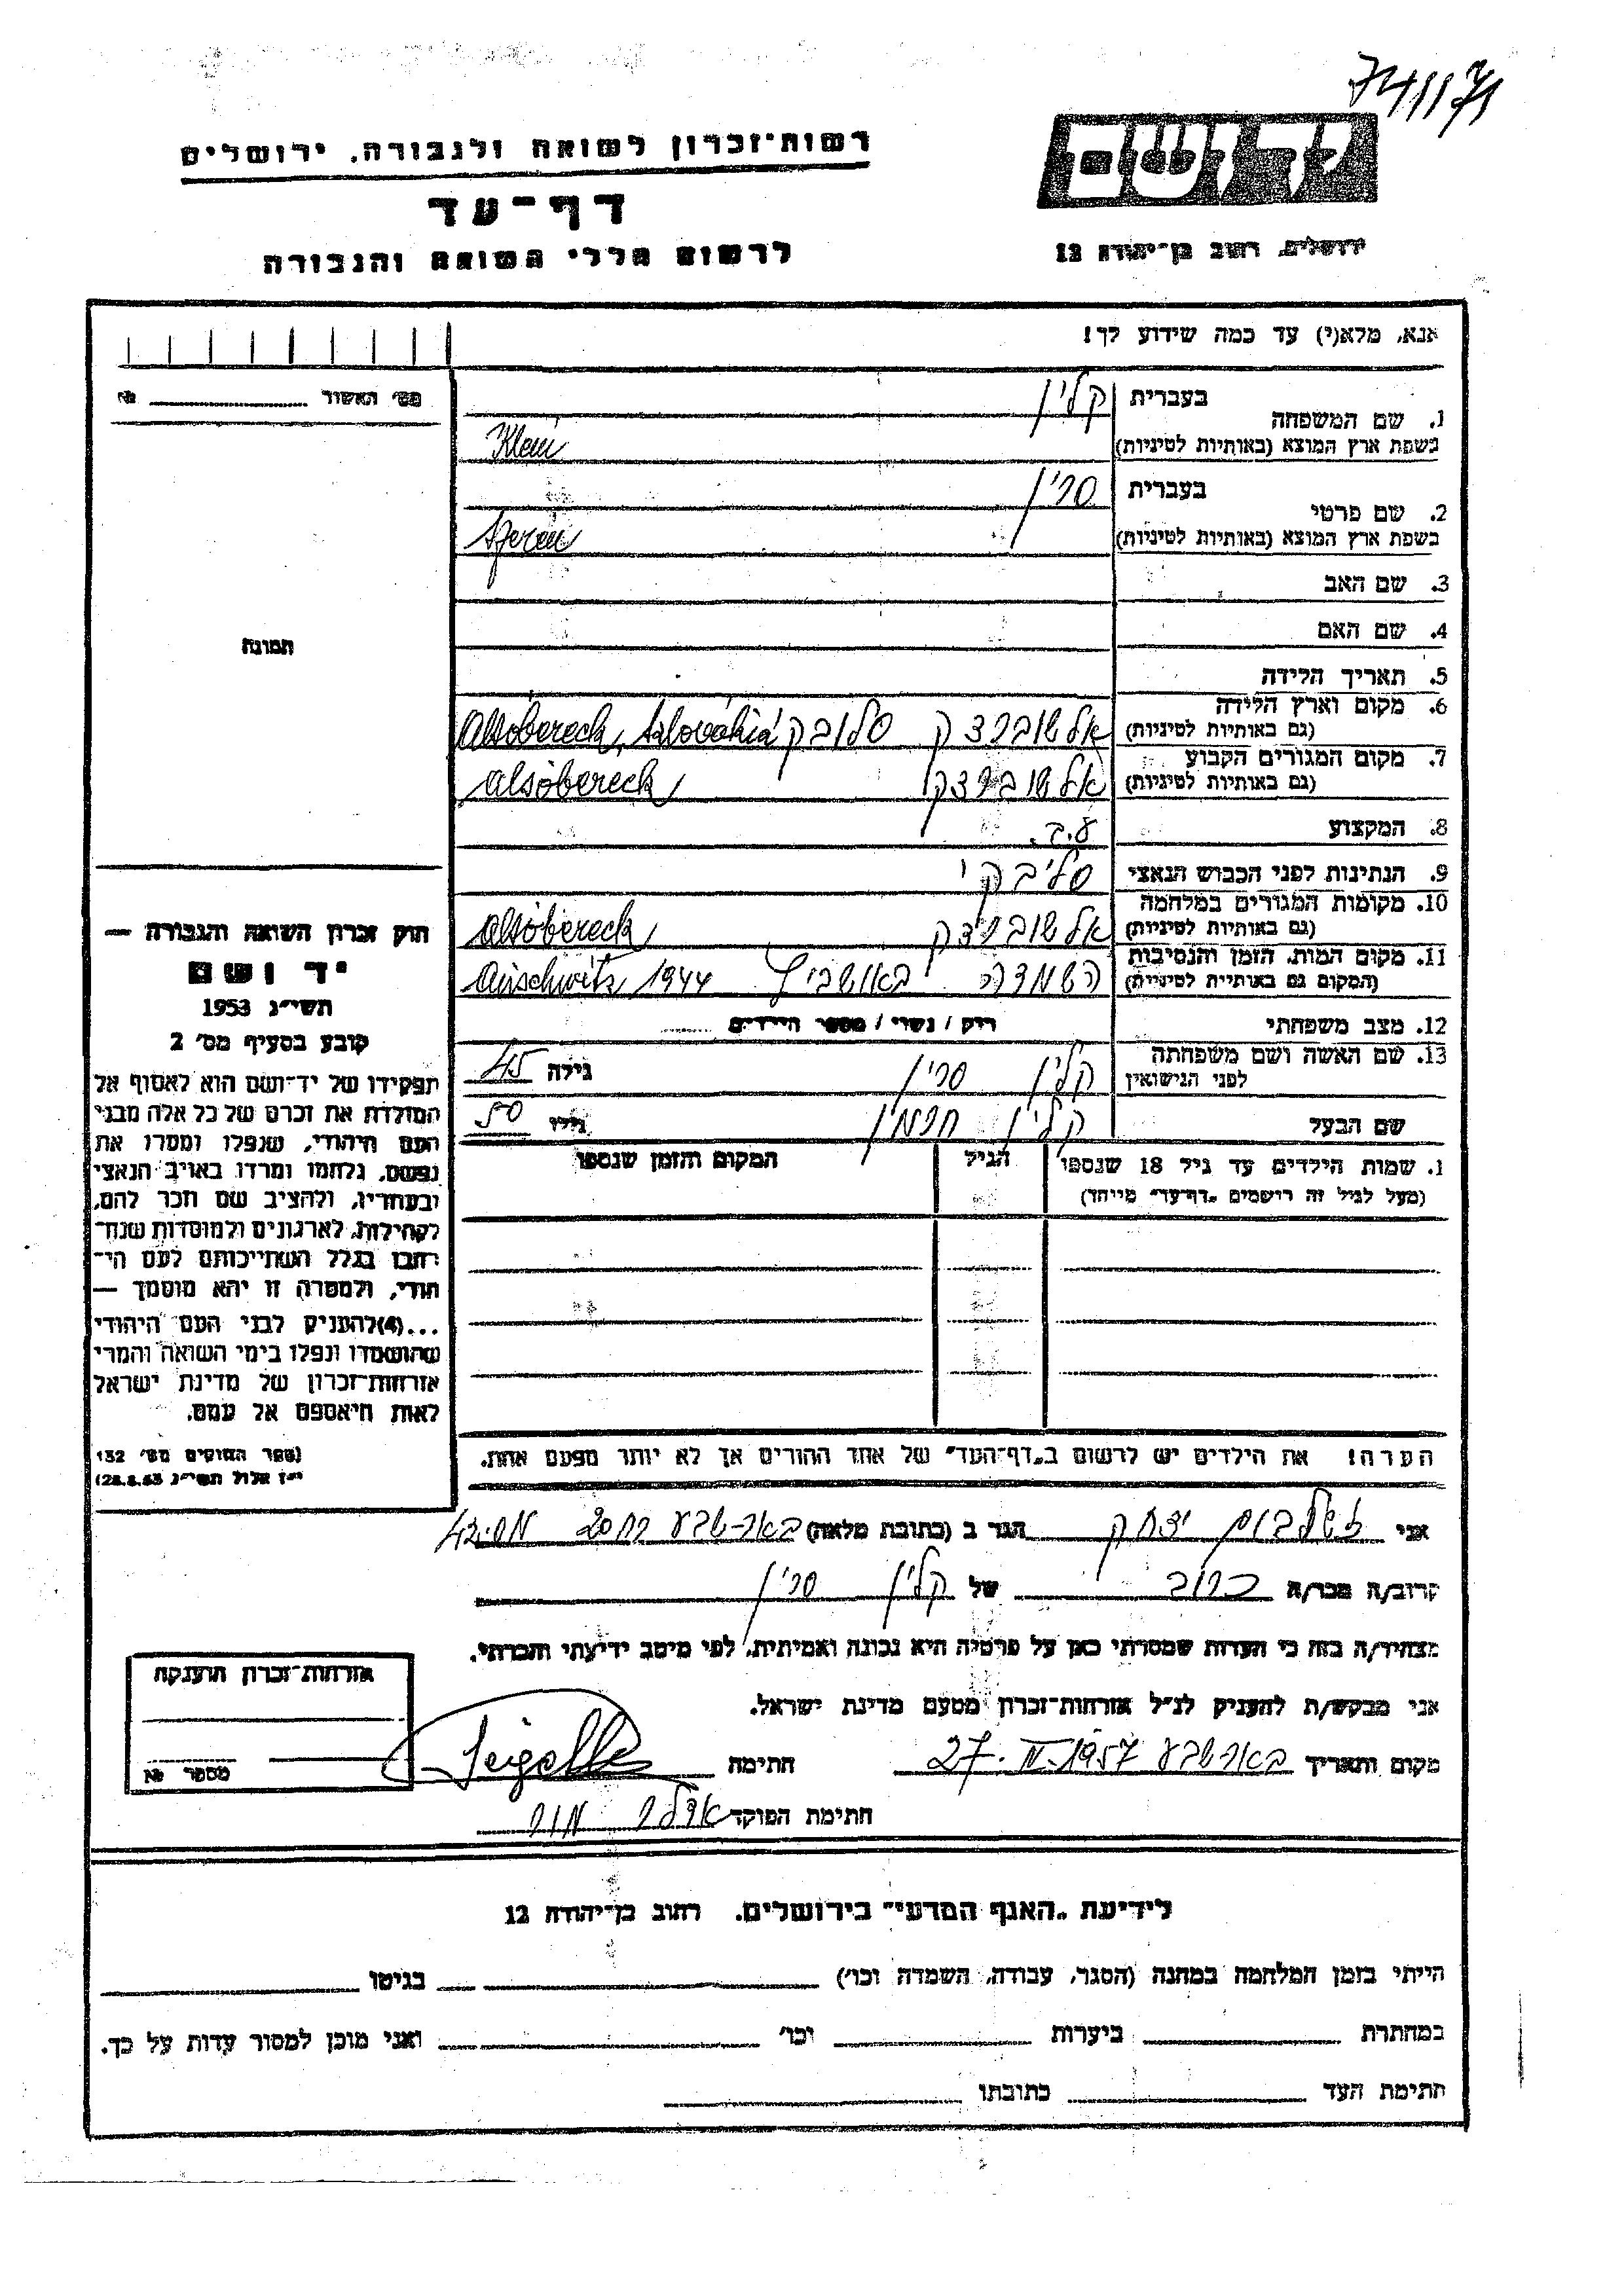 741171
יד ושם
ירושלים, רחוב בן־יהודה 12
רשות־זכרון לשואה ולגבורה, ירושלים
דף־עד
לרשום חללי השואה והגבורה
אנא, מלא(י) עד כמה שידוע לך!
מס׳ האשור №
1. שם המשפחה בעברית קליין
בשפת ארץ המוצא (באותיות לטיניות) Klein
2. שם פרטי בעברית סרין
בשפת ארץ המוצא (באותיות לטיניות) Szerén
3. שם האב
4. שם האם
תמונה
5. תאריך הלידה
6. מקום וארץ הלידה
(גם באותיות לטיניות) אלשוברצק סלובק Alsóbereck, Szlovákia
7. מקום המגורים הקבוע
(גם באותיות לטיניות) אלשוברצק Alsóbereck
8. המקצוע ע.ב.
9. הנתינות לפני הכבוש הנאצי סליבקי
10. מקומות המגורים במלחמה
(גם באותיות לטיניות) אלשוברצק Alsóbereck
11. מקום המות, הזמן והנסיבות
(המקום גם באותיות לטיניות) השמדה באושביץ Auschwitz 1944
12. מצב משפחתי רוק / נשוי / מספר הילדים
13. שם האשה ושם משפחתה
לפני הנישואין קליין סרין גילה 45
שם הבעל קליין הרמן גילו 50
1. שמות הילדים עד גיל 18 שנספו הגיל המקום והזמן שנספו
(מעל לגיל זה רושמים „דף־עד״ מיוחד)
חוק זכרון השואה והגבורה —
יד ושם
תשי״ג 1953
קובע בסעיף מס׳ 2
תפקידו של יד־ושם הוא לאסוף אל
המולדת את זכרם של כל אלה מבני
העם היהודי, שנפלו ומסרו את
נפשם, נלחמו ומרדו באויב הנאצי
ובעוזריו, ולהציב שם וזכר להם,
לקהילות, לארגונים ולמוסדות שנח־
רבו בגלל השתייכותם לעם היה־
ודי, ולמטרה זו יהא מוסמך —
...(4)להעניק לבני העם היהודי
שהושמדו ונפלו בימי השואה והמרי
אזרחות־זכרון של מדינת ישראל
לאות היאספם אל עמם.
(ספר החוקים מס׳ 132
י״ז אלול תשי״ג 28.8.53)
הערה! את הילדים יש לרשום ב„דף־העד״ של אחד ההורים אך לא יותר מפעם אחת.
אני זיגלבוים יצחק הגר ב (כתובת מלאה) באר־שבע
קרוב/ה מכר/ה קרוב של קליין סרין
מצהיר/ה בזה כי העדות שמסרתי כאן על פרטיה היא נכונה ואמיתית, לפי מיטב ידיעתי והכרתי.
אני מבקש/ת להעניק לנ״ל אזרחות־זכרון מטעם מדינת ישראל.
מקום ותאריך באר־שבע 27. II. 1957 חתימה
חתימת הפוקד
אזרחות־זכרון הוענקה
מספר №
לידיעת „האגף המדעי״ בירושלים, רחוב בן־יהודה 12
הייתי בזמן המלחמה במחנה (הסגר, עבודה, השמדה וכו׳) בגיטו
במחתרת ביערות וכו׳ ואני מוכן למסור עדות על כך.
חתימת העד כתובתו